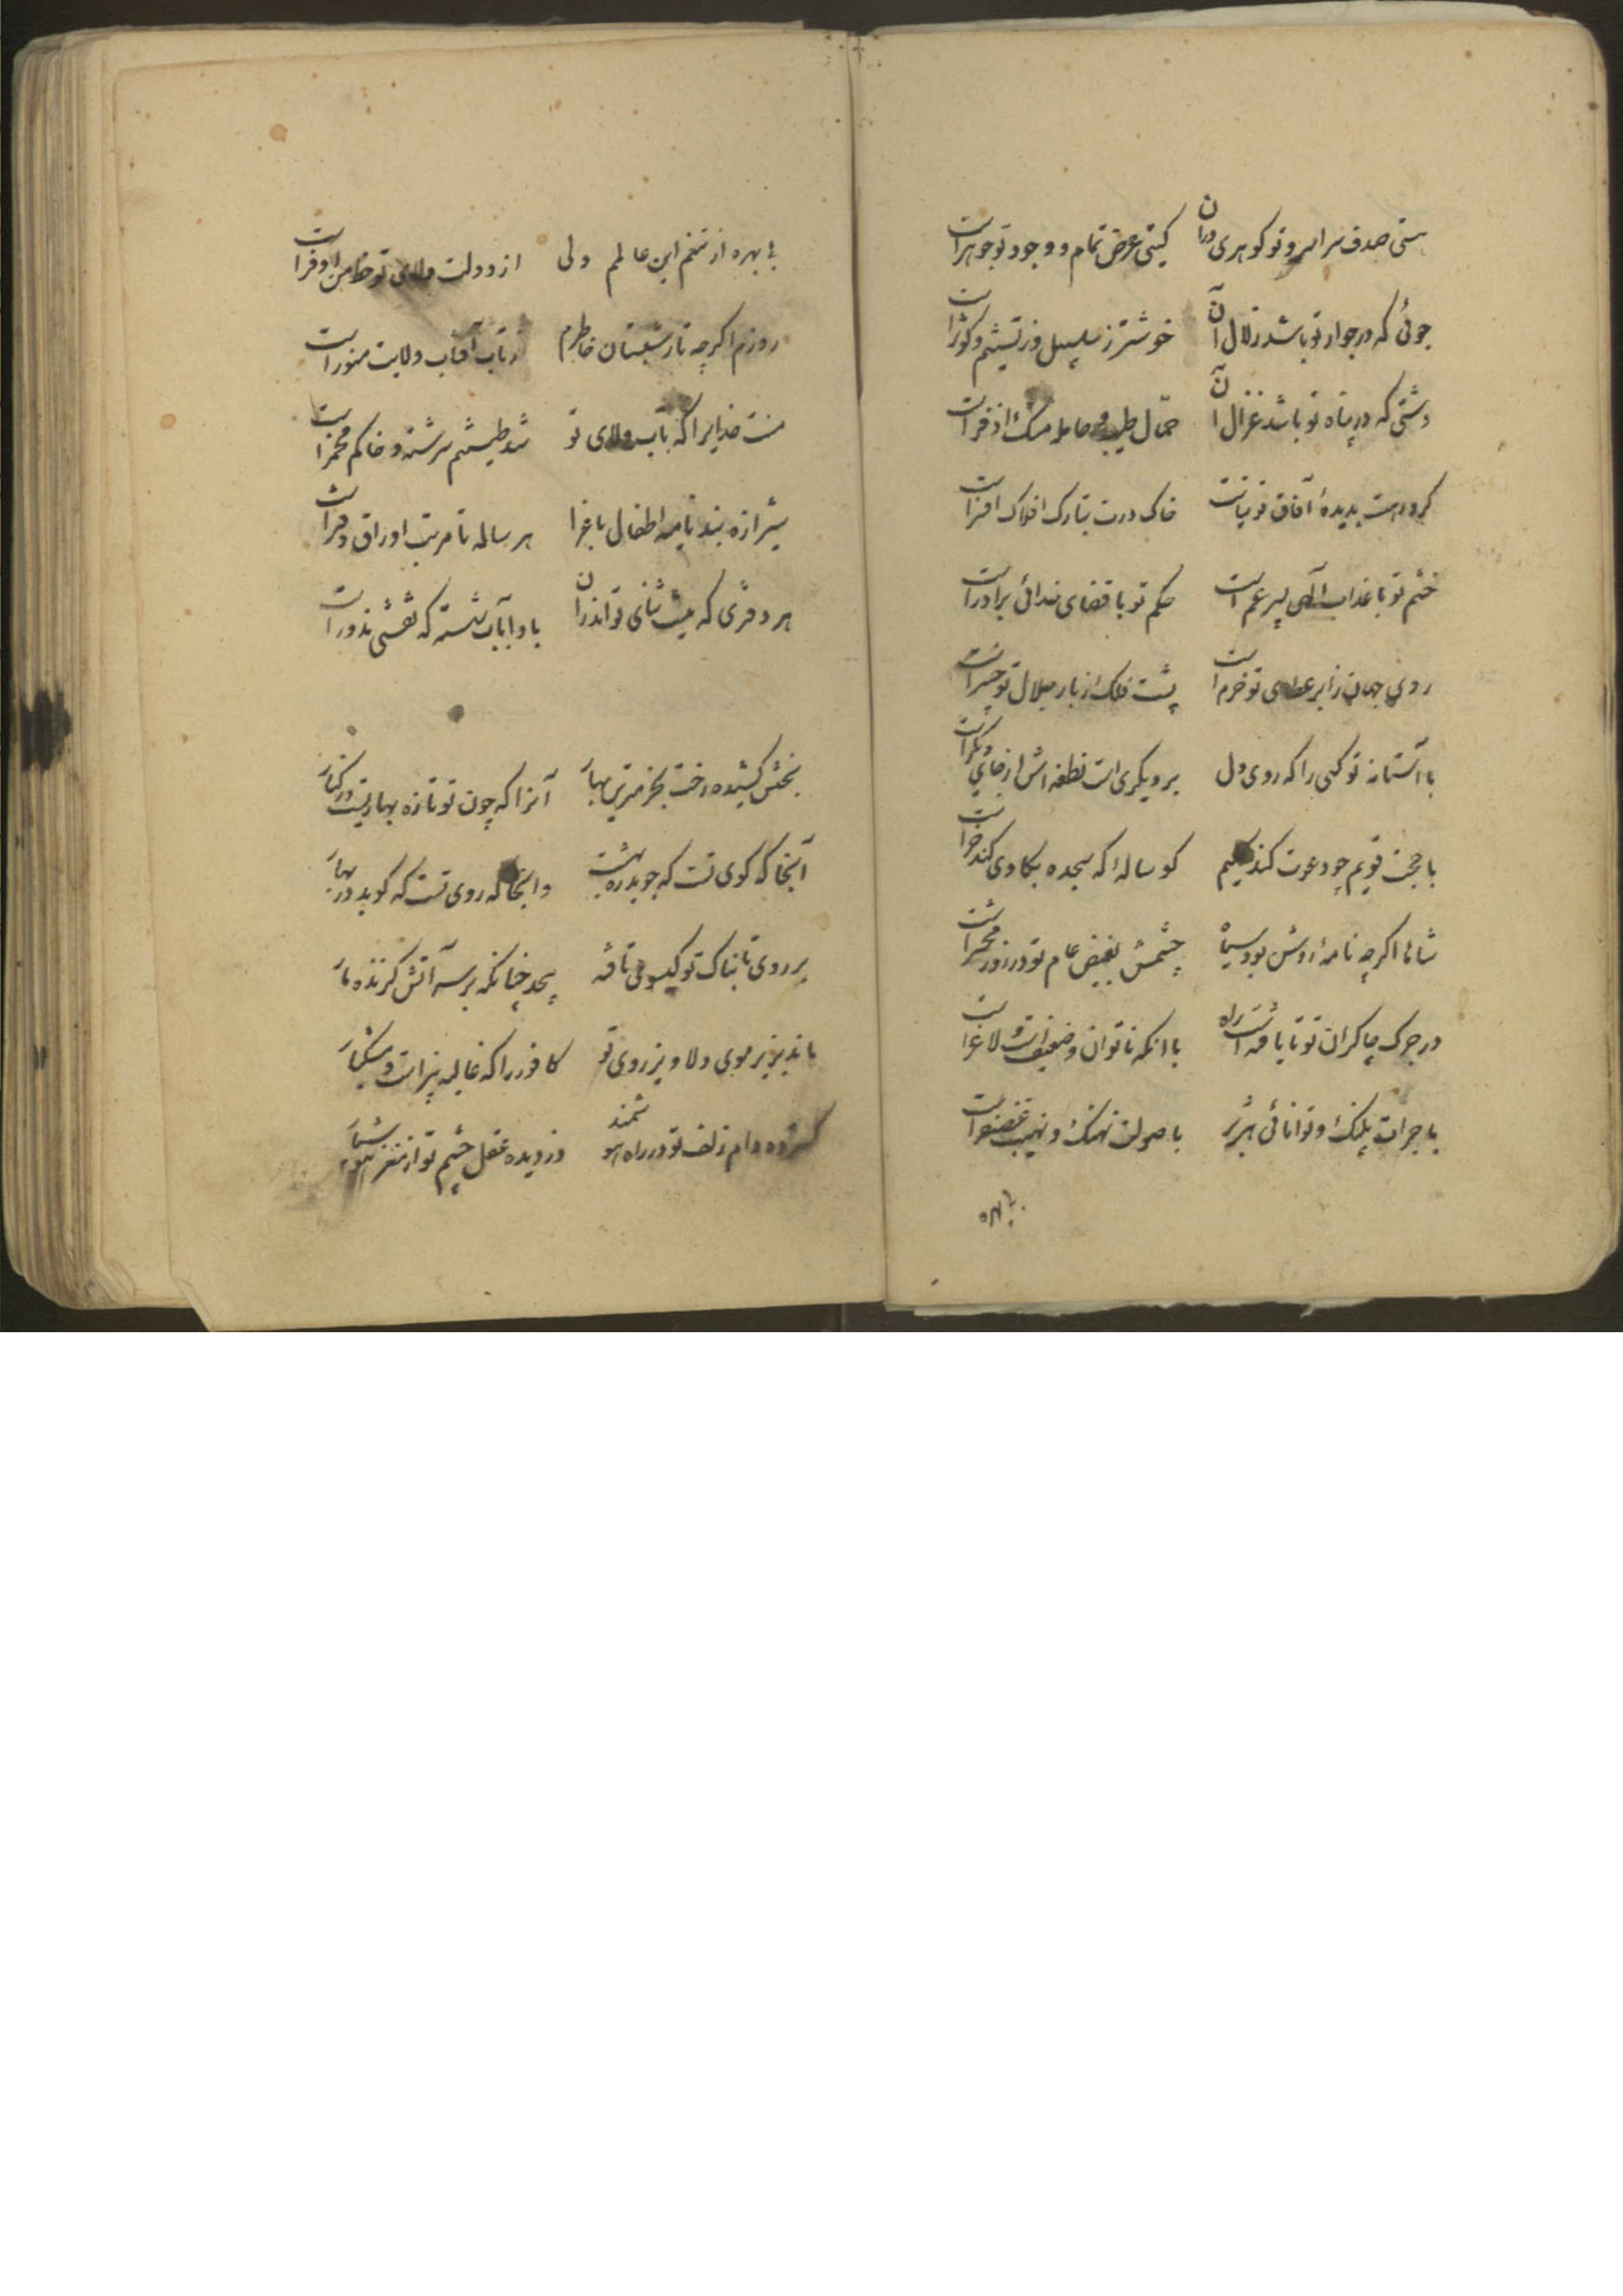 هستی صدف سراسر و تو گوهری دران گیتی عرض تمام و وجود تو جوهرست
جوئی که در جوار تو باشد زلال آن خوشتر ز سلسبیل و ز تسنیم و کوثرست
دشتی که در پناه تو باشد غزال آن حمال طیب و حامله مشک اذفرست
گرد رهت بدیدهٔ آفاق توتیاست خاک درت بتارک افلاک افسرست
خشم تو با عذاب آلهی پسر عم است حکم تو با قضای خدائی برادرست
روی جهان ز ابر عطای تو خرم است پشت فلک ز بار جلال تو چنبرست
با آستانه تو کسی را که روی دل بر دیگری است نطفه اش از جای دیگرست
با حجت قویم چو دعوت کند کلیم کو ساله که سجده بگاوی کند خرست
شاها اگرچه نامه اش بود سیاه چشمش بفیض عام تو در روز محشرست
در جرک چاکران تو تا یافته است راه با انکه ناتوان و ضعیف است و لاغرست
با جرات پلنک و توانائی هژبر با صولت نهنک و نهیب غضنفرست
بی بهره
بی بهره از تنعم این عالمم ولی از دولت ولای تو حظ من اوفرست
روزم اگرچه تار شبستان خاطرم از تاب آفتاب ولایت منورست
منت خدایرا که بآب ولای تو شد طینتم سرشته و خاکم مخمرست
شیرازه بند نامیه اطفال باغ را هر ساله تا مرتب اوراق دفترست
هر دفتری که نیست ثنای تو اندران بادا بآب شسته که نقشی مزورست
بختش کشیده رخت بخرمترین بهار آنرا که چون تو تازه بهاریست در کنار
آنجا که کوی تست که جوید ره بهشت وانجا که روی تست که گوید در بهار
بر روی تابناک تو گیسوی تافته پیچد چنانکه بر سر آتش گزنده مار
ماند بزیر موی دلاویز روی تو کافور را که غالیه بیز است و مشکبار
گسترده دام زلف تو در راه هوشمند دزدیده عقل چشم تو از مغز هوشیار